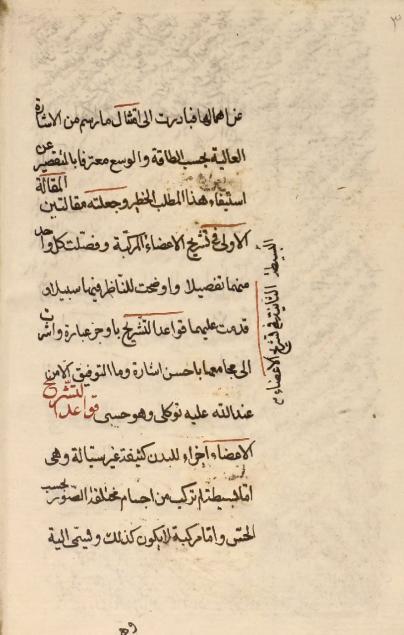 ٣
عن اهمالها فبادرت الى امتثال ما رسم من الاشارة
العالية بحسب الطاقة والوسع معترفا بالتقصير عن
استيفاء هذا المطلب الخطير وجعلته مقالتين المقالة
الاولى فى تشريح الاعضاء المركبة وفصلت كل واحد
منهما تفصيلا واوضحت للناظر فيهما سبيلا و
قدمت عليهما قواعد التشريح باوجز عبارة واشرت
الى مجامعها باحسن اشارة وما التوفيق الا من
عند الله عليه توكلى وهو حسبى قواعد التشريح
الاعضاء اجزاء للبدن كثيفة غير سيالة وهى
اما بسيطة لم تركب من اجسام مختلفة الصور بحسب
الحس واما مركبة لا يكون كذلك وتسمى الية
البسيطة الثانية فى تشريح الاعضاء